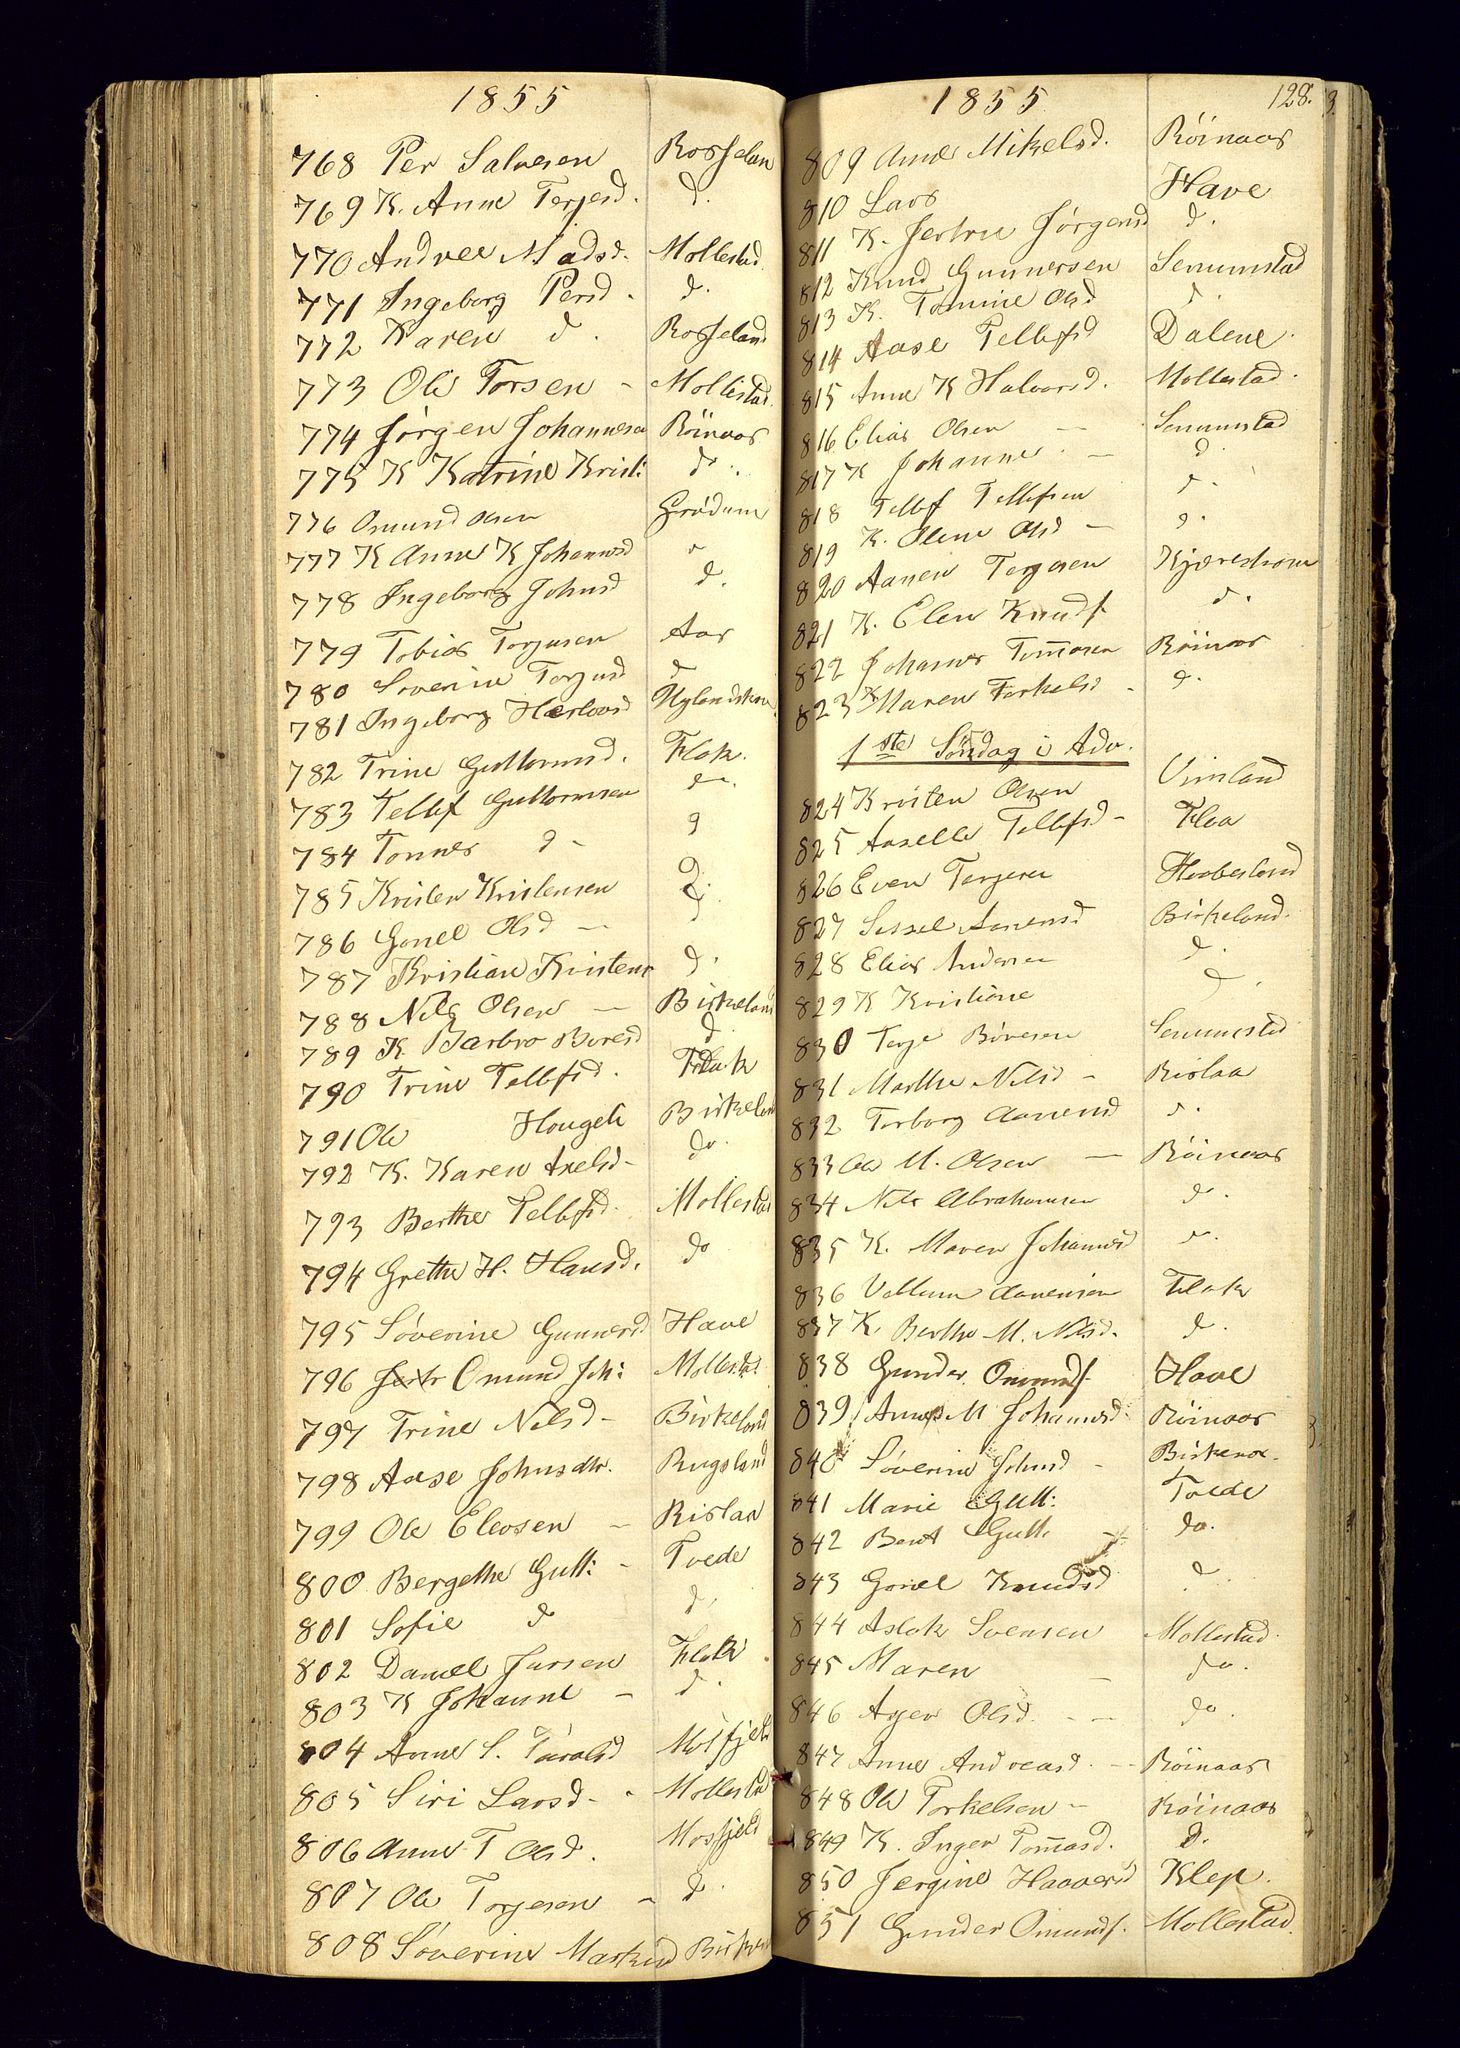 1855
768 Per Salvesen Rosseland
769 K. Anne Terjesd. d.
770 Andrea Madsd. Mollestad
771 Ingeborg Persd. d.
772 Karen d. Rosseland
773 Ole Torsen - Mollestad
774 Jørgen Johannesen Röinaas
775 K Katrine Krist: do.
776 Osmund Olsen Grødum
777 K Anne K Johannesd d
778 Ingeborg Johnsd d.
779 Tobias Torjusen Aas
780 Severine Torjusd d
781 Ingeborg Harloosd
782 Trine Guttormsd. Flak.
783 Tellef Guttormsen d
784 Tonnes d - d
785 Kristen Kristensen d.
786 Gonel Olsd - d
787 Kristian Kristens d.
788 Nils Olsen - Birkeland
789 K Barbro Boresd d
790 Trine Tellefsd. Flak
791 Ole Hougeli Birkeland
792 K. Karen Axelsd - do.
793 Berthe Tellefsd. Mollestad
794 Grethe H. Hansd. do
795 Söverine Gunnersd Have
796 Omund Joh: Mollestad
797 Trine Nilsd - Birkeland
798 Aase Johnsdtr. Rugsland
799 Ole Eleosen - Rislaa
800 Bergethe Gutt: - Tvede
801 Sofie d d
802 Daniel Jursen Flak
803 K Johanne - d.
804 Anne S. Taralsd Mosfjeld
805 Siri Larsd - Mollestad
806 Anne T Olsd. Mosfjeld
807 Ole Torjesen - d.
808 Söverine
1855 128.
809 Anne Mikelsd. Röinaas
810 Lars Have
811 K. Jertru Jørgensd d.
812 Knud Gunnersen Senumstad
813 K. Tomine Olsd d.
814 Aase Tellefsd Dalene.
815 Anne K Halvorsd. Mollestad.
816 Elias Olsen - Senumstad
817 K Johanne - d
818 Tellef Tellefsen d.
819 K. Olene Olsd - d.
820 Aanen Terjesen Kjærestrøm
821 K. Elen Knuds. d.
822 Johannes Tommasen Röinaas
823 K Maren Torkelsd - d.
1ste Söndag i Adv.
824 Kristen Olsen Vimland
825 Aaselle Tellefsd - Flaa
826 Even Terjesen Haabesland
827 Sissel Aanensd Birkeland.
828 Elias Andersen d.
829 K Kristiane d.
830 Terje Bövesen Senumstad
831 Marthe Nilsd - Rislaa
832 Torborg Aanensd d.
833 Ole M. Olsen - Röinaas
834 Nils Abrahamsen d.
835 K. Maren Johannesd d.
836 Vellum Aanensen Flak
837 K. Berthe M. Nilsd. d.
838 Gunder Omunds. Have
839 Anne M Johannesd. Röinaas
840 Söverine Johnsd -
841 Marie Gutt: Tvede
842 Bent Gutt. - do.
843 Gonel Knudsd d.
844 Aslak Svensen Mollestad.
845 Maren - do.
846 Olsd. - - do.
847 Anne Andreasd. - Röinaas
848 Ole Torkelsen - Röinaas
849 K. Inger Tommasd. d.
850 Jergine Haaversd Klep.
851 Gunder Omunds. Mollestad.